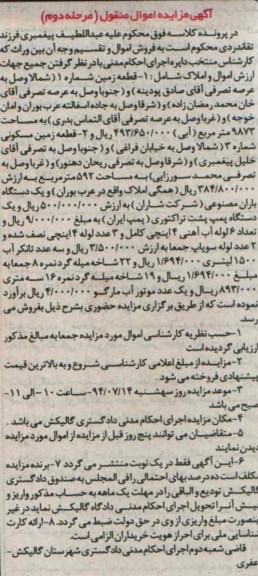 آگهی مزایده اموال منقول (مرحله دوم)
در پرونده کلاسه فوق محکوم علیه عبداللطیف پیغمبری فرزند
نقاندردی محکوم است به فروش اموال و تقسیم وجه آن بین وراث که
کارشناس منتخب دایره اجرای احکام مدنی با در نظر گرفتن جمیع جهات
ارزش اموال و املاک شامل: ۱-قطعه زمین شماره ۱ (شمالا وصل به
عرصه تصرفی آقای صادق پودینه) و (جنوبا وصل به عرصه تصرفی آقای
خان محمد رمضان زاده) و (شرقا وصل به جاده آسفالته عرب بوران و امان
خوجه) و (غربا وصل به عرصه تصرفی آقای التماس بدری) به مساحت
۹۸۷۳ متر مربع (آبی) ۴۹۳/۶۵۰/۰۰۰ ریال و ۲-قطعه زمین مسکونی
شماره ۳ (شمالا وصل به خیابان فراغی) و (جنوبا وصل به تصرفی آقای
خلیل پیغمبری) و (شرقا وصل به تصرفی ریحان دهنور) و (غربا وصل به
تصرفی محمد سورزایی) به مساحت ۵۹۲ مترمربع به ارزش
۳۸۴/۸۰۰/۰۰۰ ریال (همگی املاک واقع در عرب بوران) و یک دستگاه
باران مصنوعی (شرکت شاران) به ارزش ۵۰۰/۰۰۰/۰۰۰ ریال و یک
دستگاه پمپ پشت تراکتوری (پمپ ایران) به مبلغ ۹/۰۰۰/۰۰۰ ریال و
تعداد ۶ لوله آب آهنی ۴ اینچی کامل و ۳ عدد لوله ۴ اینچی نصف شده و
۲ عدد لوله سوپاپ جمعا به ارزش ۳/۵۰۰/۰۰۰ ریال و سه عدد تانکر آب
۱۵۰۰ لیتری ۱/۶۹۴/۰۰۰ ریال و ۲۲ شاخه میله گرد نمره ۸ جمعا به
مبلغ ۱/۶۹۴/۰۰۰ ریال و ۱۹ شاخه میله گرد نمره ۱۶ سه متری
۸۹۳/۰۰۰ ریال و یک عدد موتور آب مارگو ۴/۰۰۰/۰۰۰ ریال برآورد
نموده است که از طریق برگزاری مزایده حضوری بشرح ذیل بفروش می
رسد.
۱-حسب نظریه کارشناسی اموال مورد مزایده جمعا به مبالغ مذکور
ارزیابی گردیده است
۲-مزایده از مبلغ اعلامی کارشناسی شروع و به بالاترین قیمت
پیشنهادی فروخته می شود.
۳-موعد مزایده روز سه شنبه ۹۴/۰۷/۱۴-ساعت ۱۰ الی ۱۱-
صبح می باشد
۴-مکان مزایده اجرای احکام مدنی دادگستری گالیکش می باشد.
۵-متقاضیان می توانند پنج روز قبل از مزایده از اموال مورد مزایده
دیدن نمایند
۶-این آگهی فقط در یک نوبت منتشر می گردد ۷-برنده مزایده
مکلف است ده درصد بهای احتمالی را فی المجلس به صندوق دادگستری
گالیکش تودیع و الباقی را در مهلت یک ماهه به حساب مذکور واریز و
فیش آنرا تحویل اجرای احکام مدنی دادگاه گالیکش نماید در غیر
ینصورت مبلغ واریزی از وی در حق دولت ضبط می گردد. ۸-ارائه کارت
شناسایی ملی برای احراز هویت خریداران الزامی است.
قاضی شعبه دوم اجرای احکام مدنی دادگستری شهرستان گالیکش-